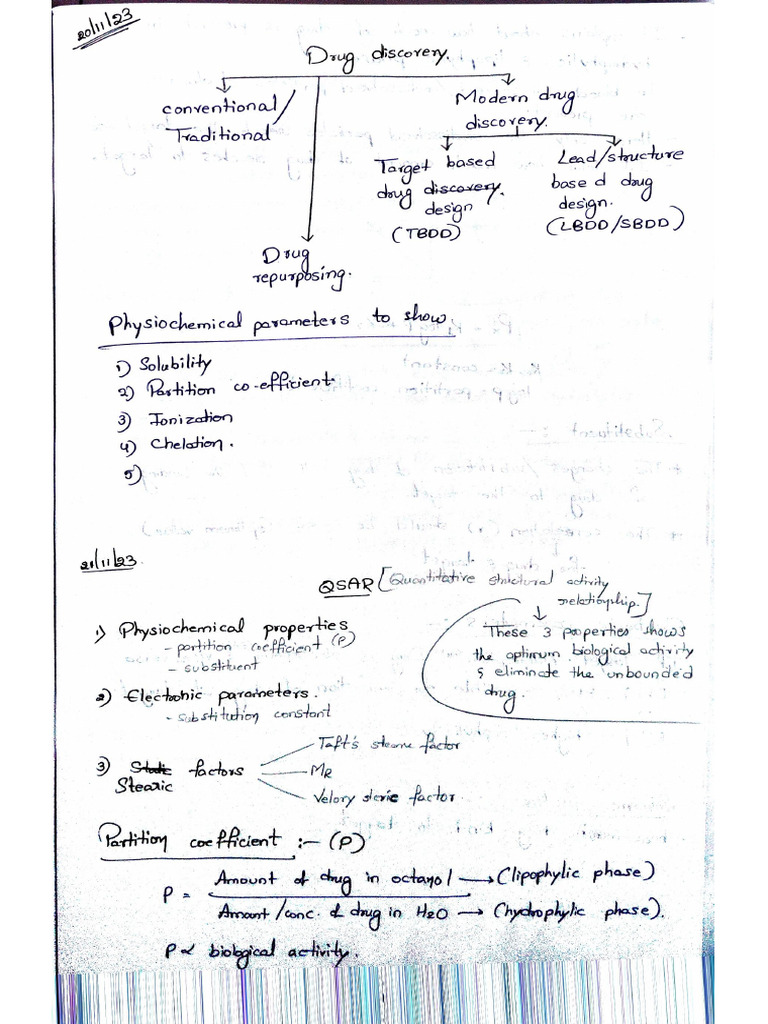 20/11/23
Drug discovery.
conventional/
Traditional
Modern drug
discovery.
Target based
drug discovery.
design
(TBDD)
Lead/structure
based drug
design.
(LBDD/SBDD)
Drug
repurposing.
Physiochemical parameters to show
1) Solubility
2) Partition co-efficient
3) Ionization
4) Chelation.
5)
21/11/23
QSAR [Quantitative structural activity
relationship.]
1) Physiochemical properties
- partition coefficient (P)
- substituent
These 3 properties shows
the optimum biological activity
& eliminate the unbounded
drug
2) Electronic parameters.
- substitution constant
3) Static factors
Stearic
Taft's stearic factor
MR
Velory steric factor.
Partition coefficient :- (P)
P = Amount of drug in octanol → (lipophylic phase)
Amount/conc. of drug in H2O → (hydrophylic phase).
P ∝ biological activity.